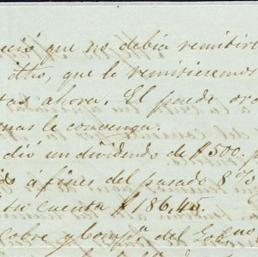 ció que no debia remitirse
otro, que le remitiesemos
tas ahora. El puede or
mas le convenga.
dió un dividendo de $500. p
do á fines del pasado 8
su cuenta $186.45
Cobre y Comp.ª del Gob.no